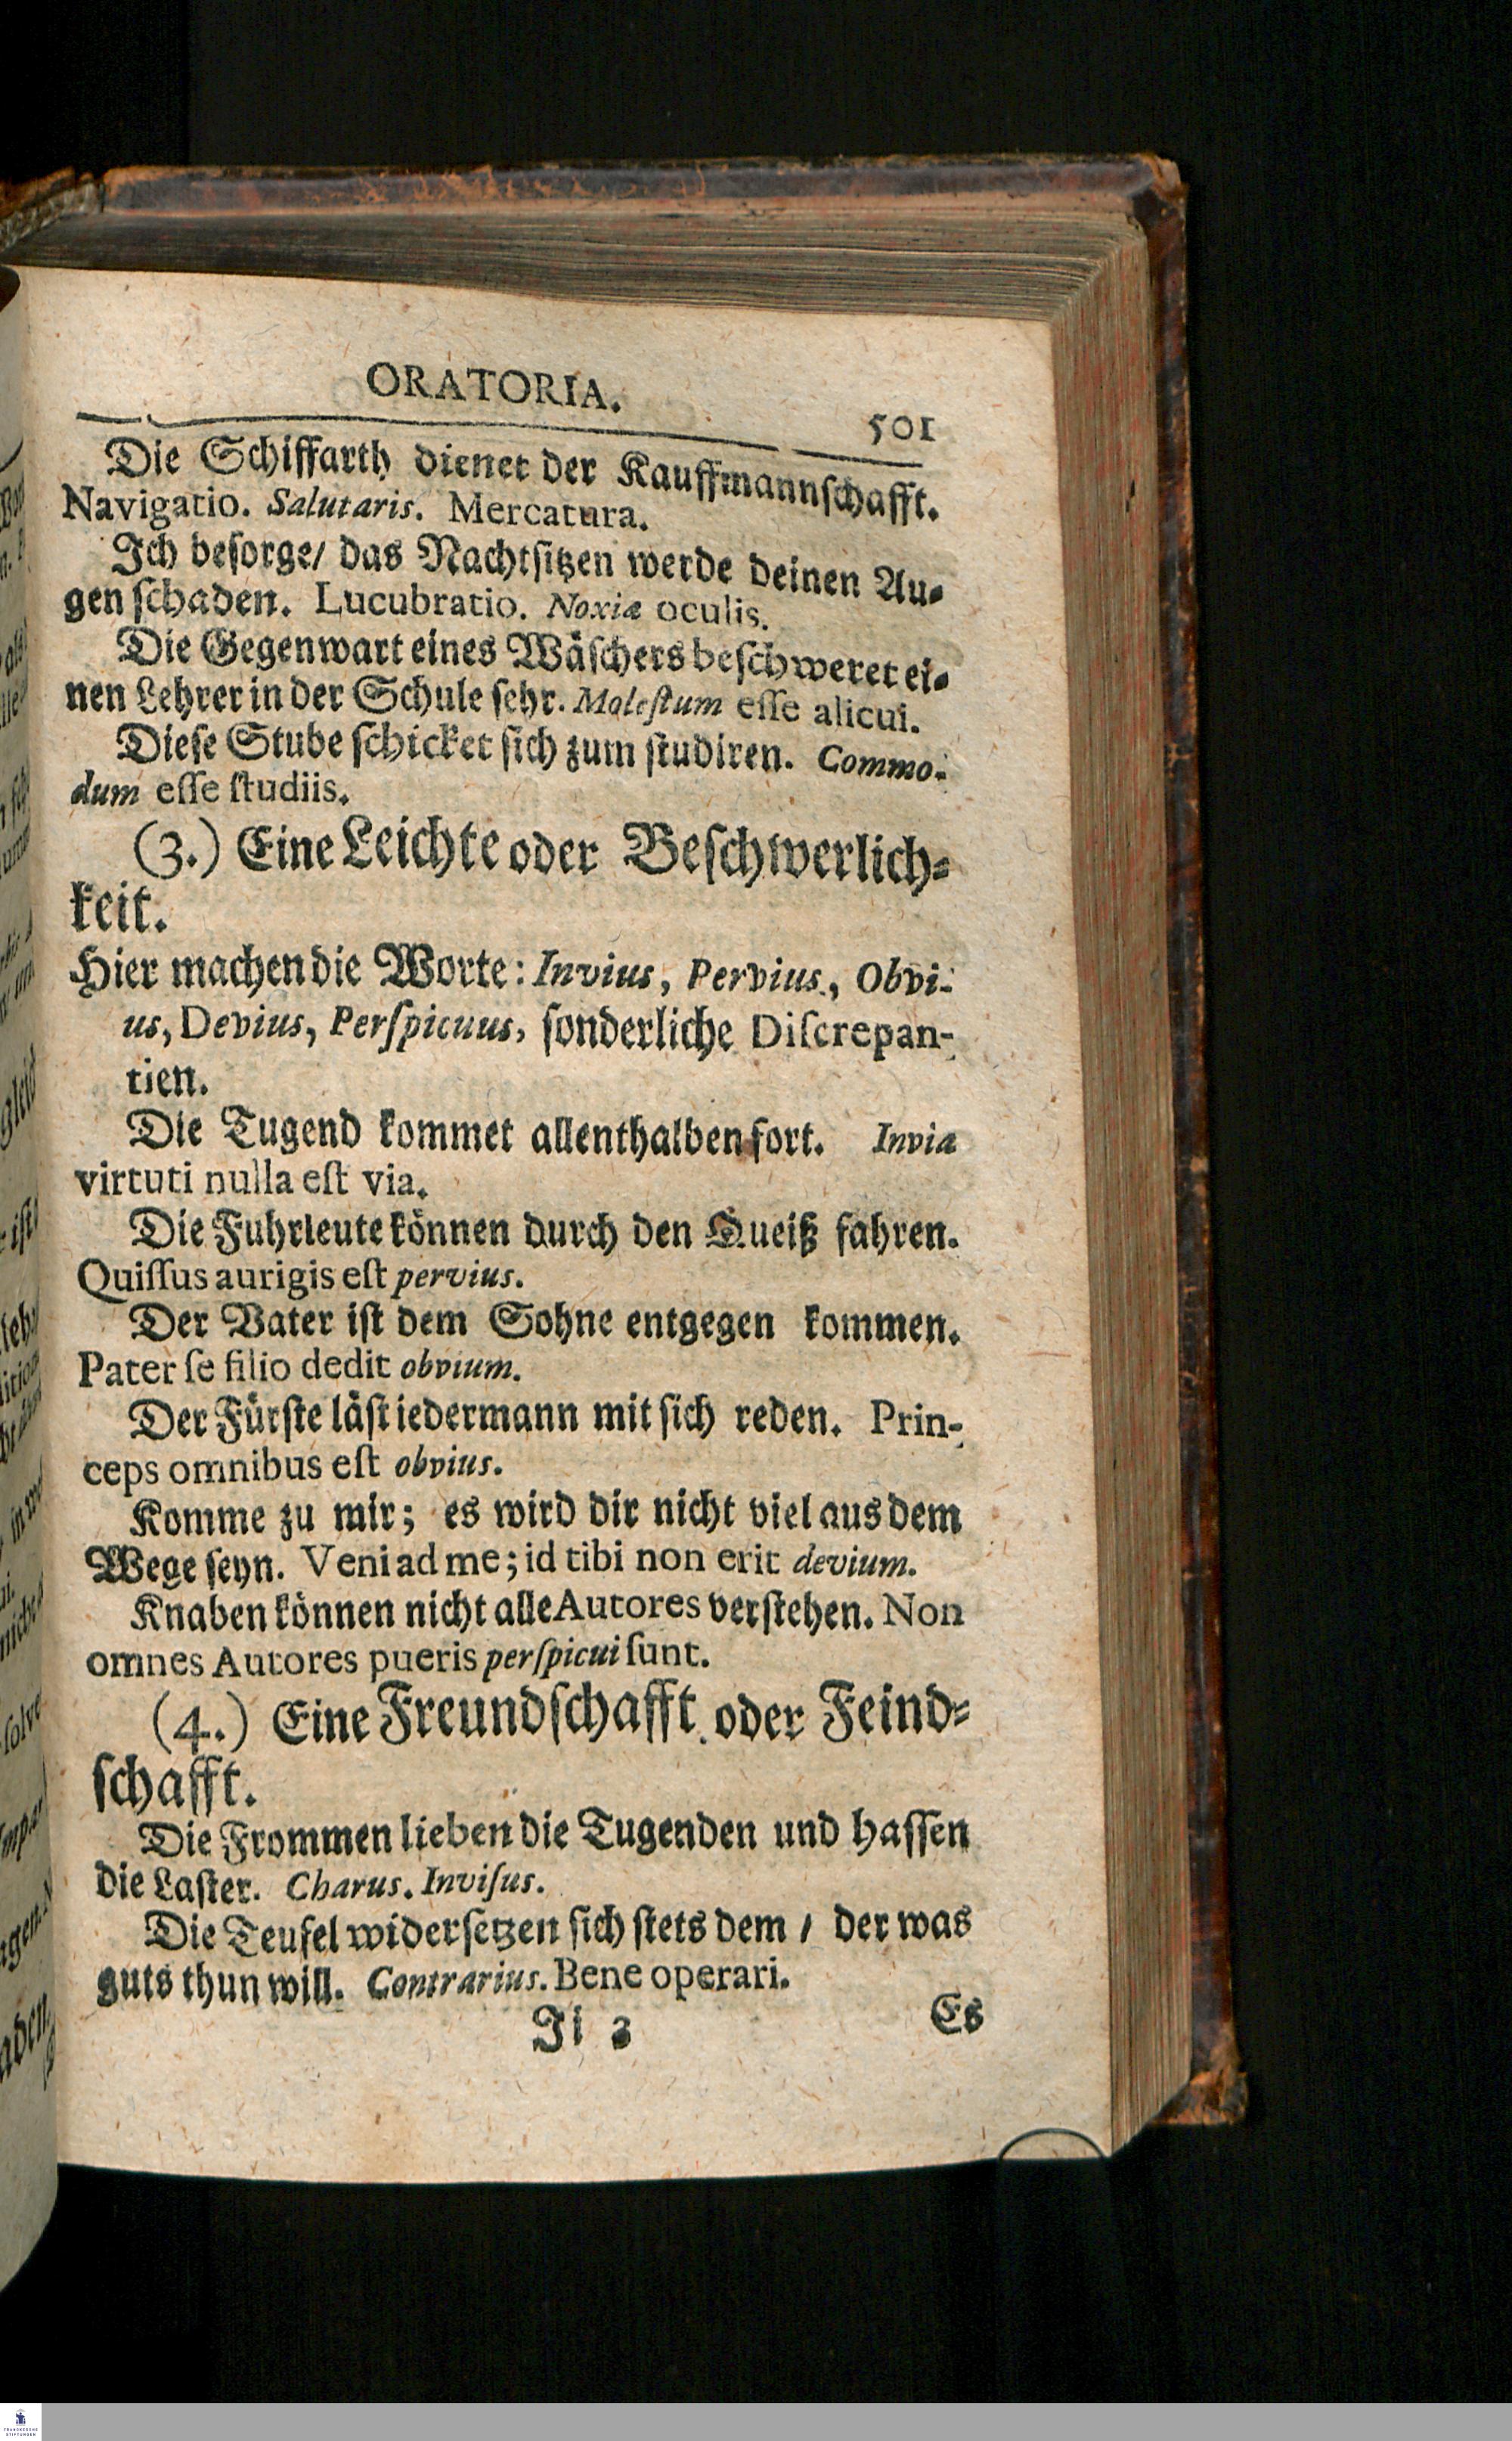 ORATORIA.
501
Die Schiffarth dienet der Kauffmannschafft.
Navigatio. Salutaris. Mercatura.
Ich besorge/ das Nachtsitzen werde deinen Au-
gen schaden. Lucubratio. Noxia oculis.
Die Gegenwart eines Wäschers beschweret ei-
nen Lehrer in der Schule sehr. Molestum esse alicui.
Diese Stube schicket sich zum studiren. Commo-
dum esse studiis.
(3.) Eine Leichte oder Beschwerlich-
keit.
Hier machen die Worte: Invius, Pervius, Obvi-
us, Devius, Perspicuus, sonderliche Discrepan-
tien.
Die Tugend kommet allenthalben fort. Invia
virtuti nulla est via.
Die Fuhrleute können durch den Queiß fahren.
Quissus aurigis est pervius.
Der Vater ist dem Sohne entgegen kommen.
Pater se filio dedit obvium.
Der Fürste läst iedermann mit sich reden. Prin-
ceps omnibus est obvius.
Komme zu mir; es wird dir nicht viel aus dem
Wege seyn. Veni ad me; id tibi non erit devium.
Knaben können nicht alle Autores verstehen. Non
omnes Autores pueris perspicui sunt.
(4.) Eine Freundschafft oder Feind-
schafft.
Die Frommen lieben die Tugenden und hassen
die Laster. Charus. Invisus.
Die Teufel widersetzen sich stets dem / der was
guts thun will. Contrarius. Bene operari.
Ji 3
Es